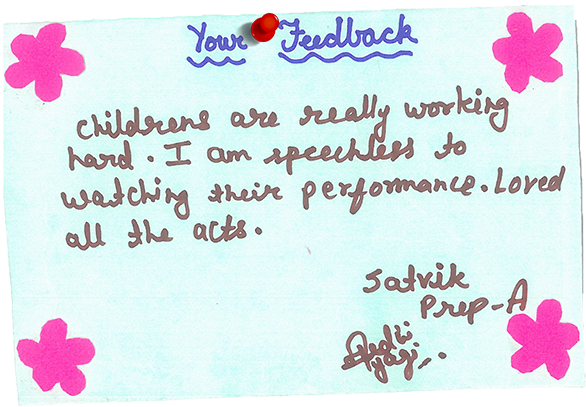 Your Feedback
Childrens are really working
hard. I am speechless to
watching their performance. Loved
all the acts.
Satvik
Prep-A